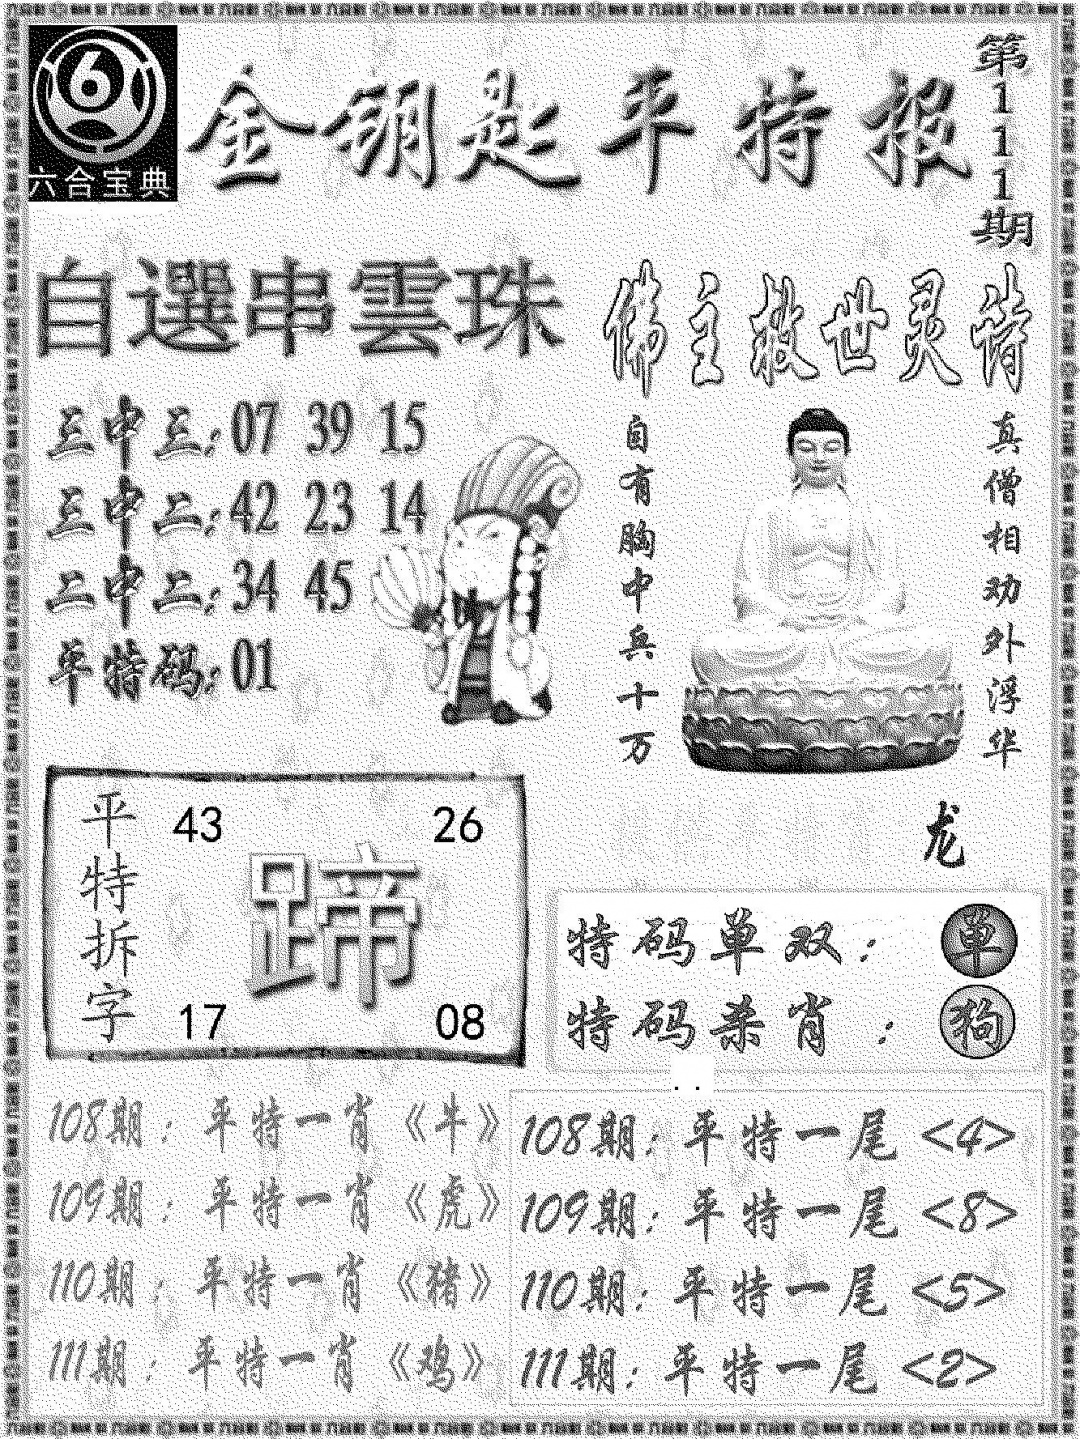 六合宝典
金钥匙平特报
第111期
自選串雲珠
三中三:07 39 15
三中二:42 23 14
二中二:34 45
平特码:01
佛主救世灵诗
真僧相劝外浮华
自有胸中兵十万
龙
平特拆字
43 26
蹄
17 08
特码单双:单
特码杀肖:狗
..
108期:平特一肖《牛》
109期:平特一肖《虎》
110期:平特一肖《猪》
111期:平特一肖《鸡》
108期:平特一尾<4>
109期:平特一尾<8>
110期:平特一尾<5>
111期:平特一尾<2>